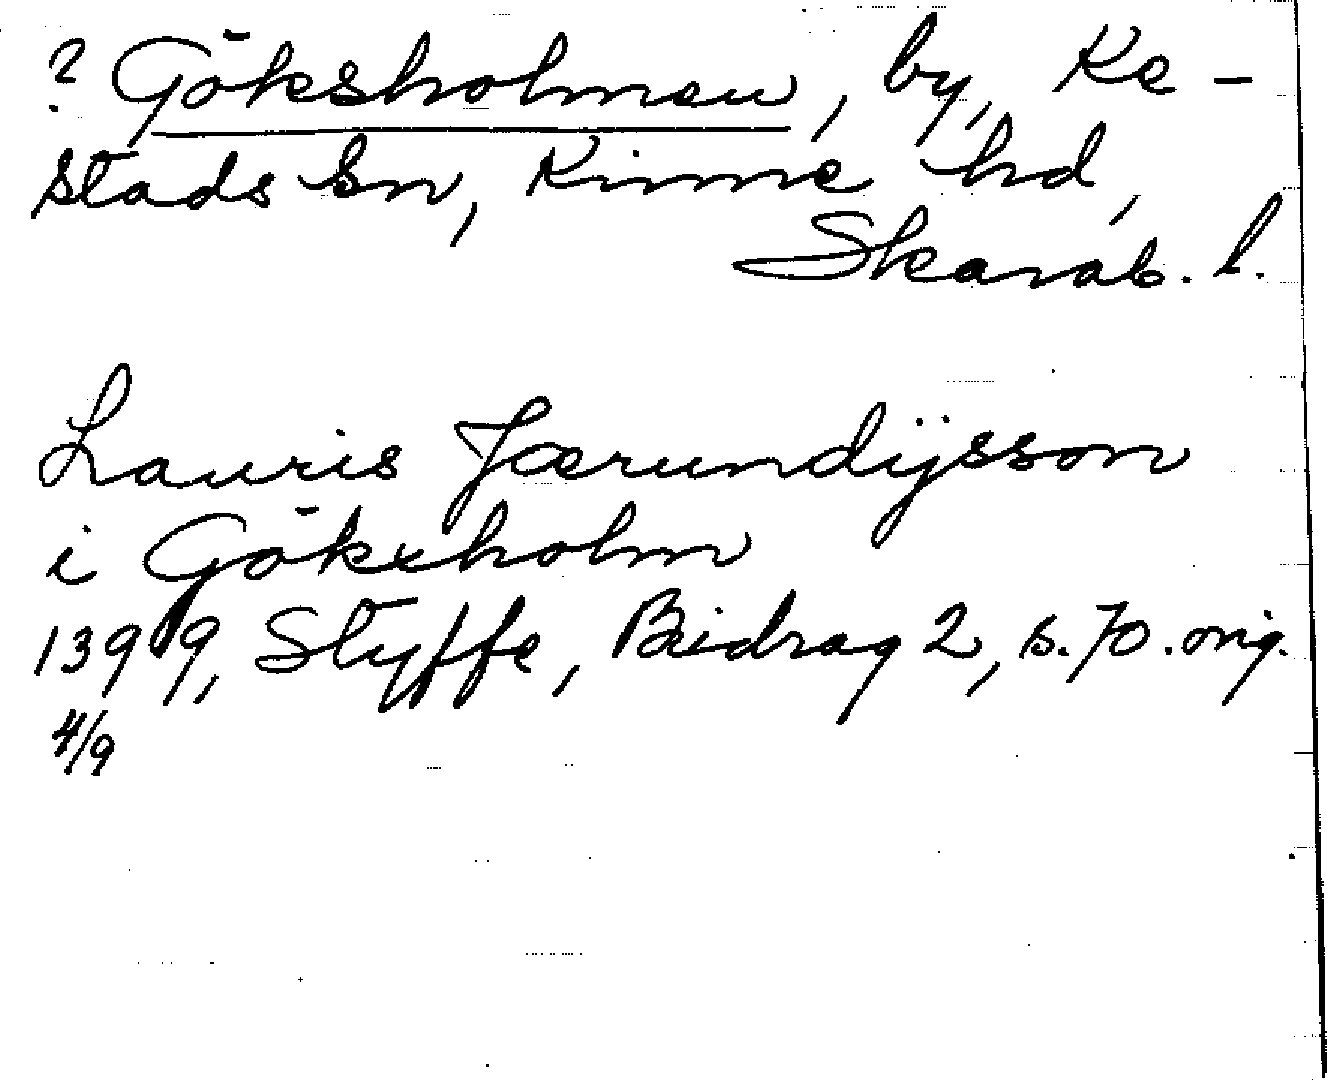 ? Göksholmen, by, Ke-
stads sn, Kinne hd,
Skarab. l.
Lauris Jærundijsson
i Gökxholm
1399, Styffe, Bidrag 2, s. 70. orig.
4/9